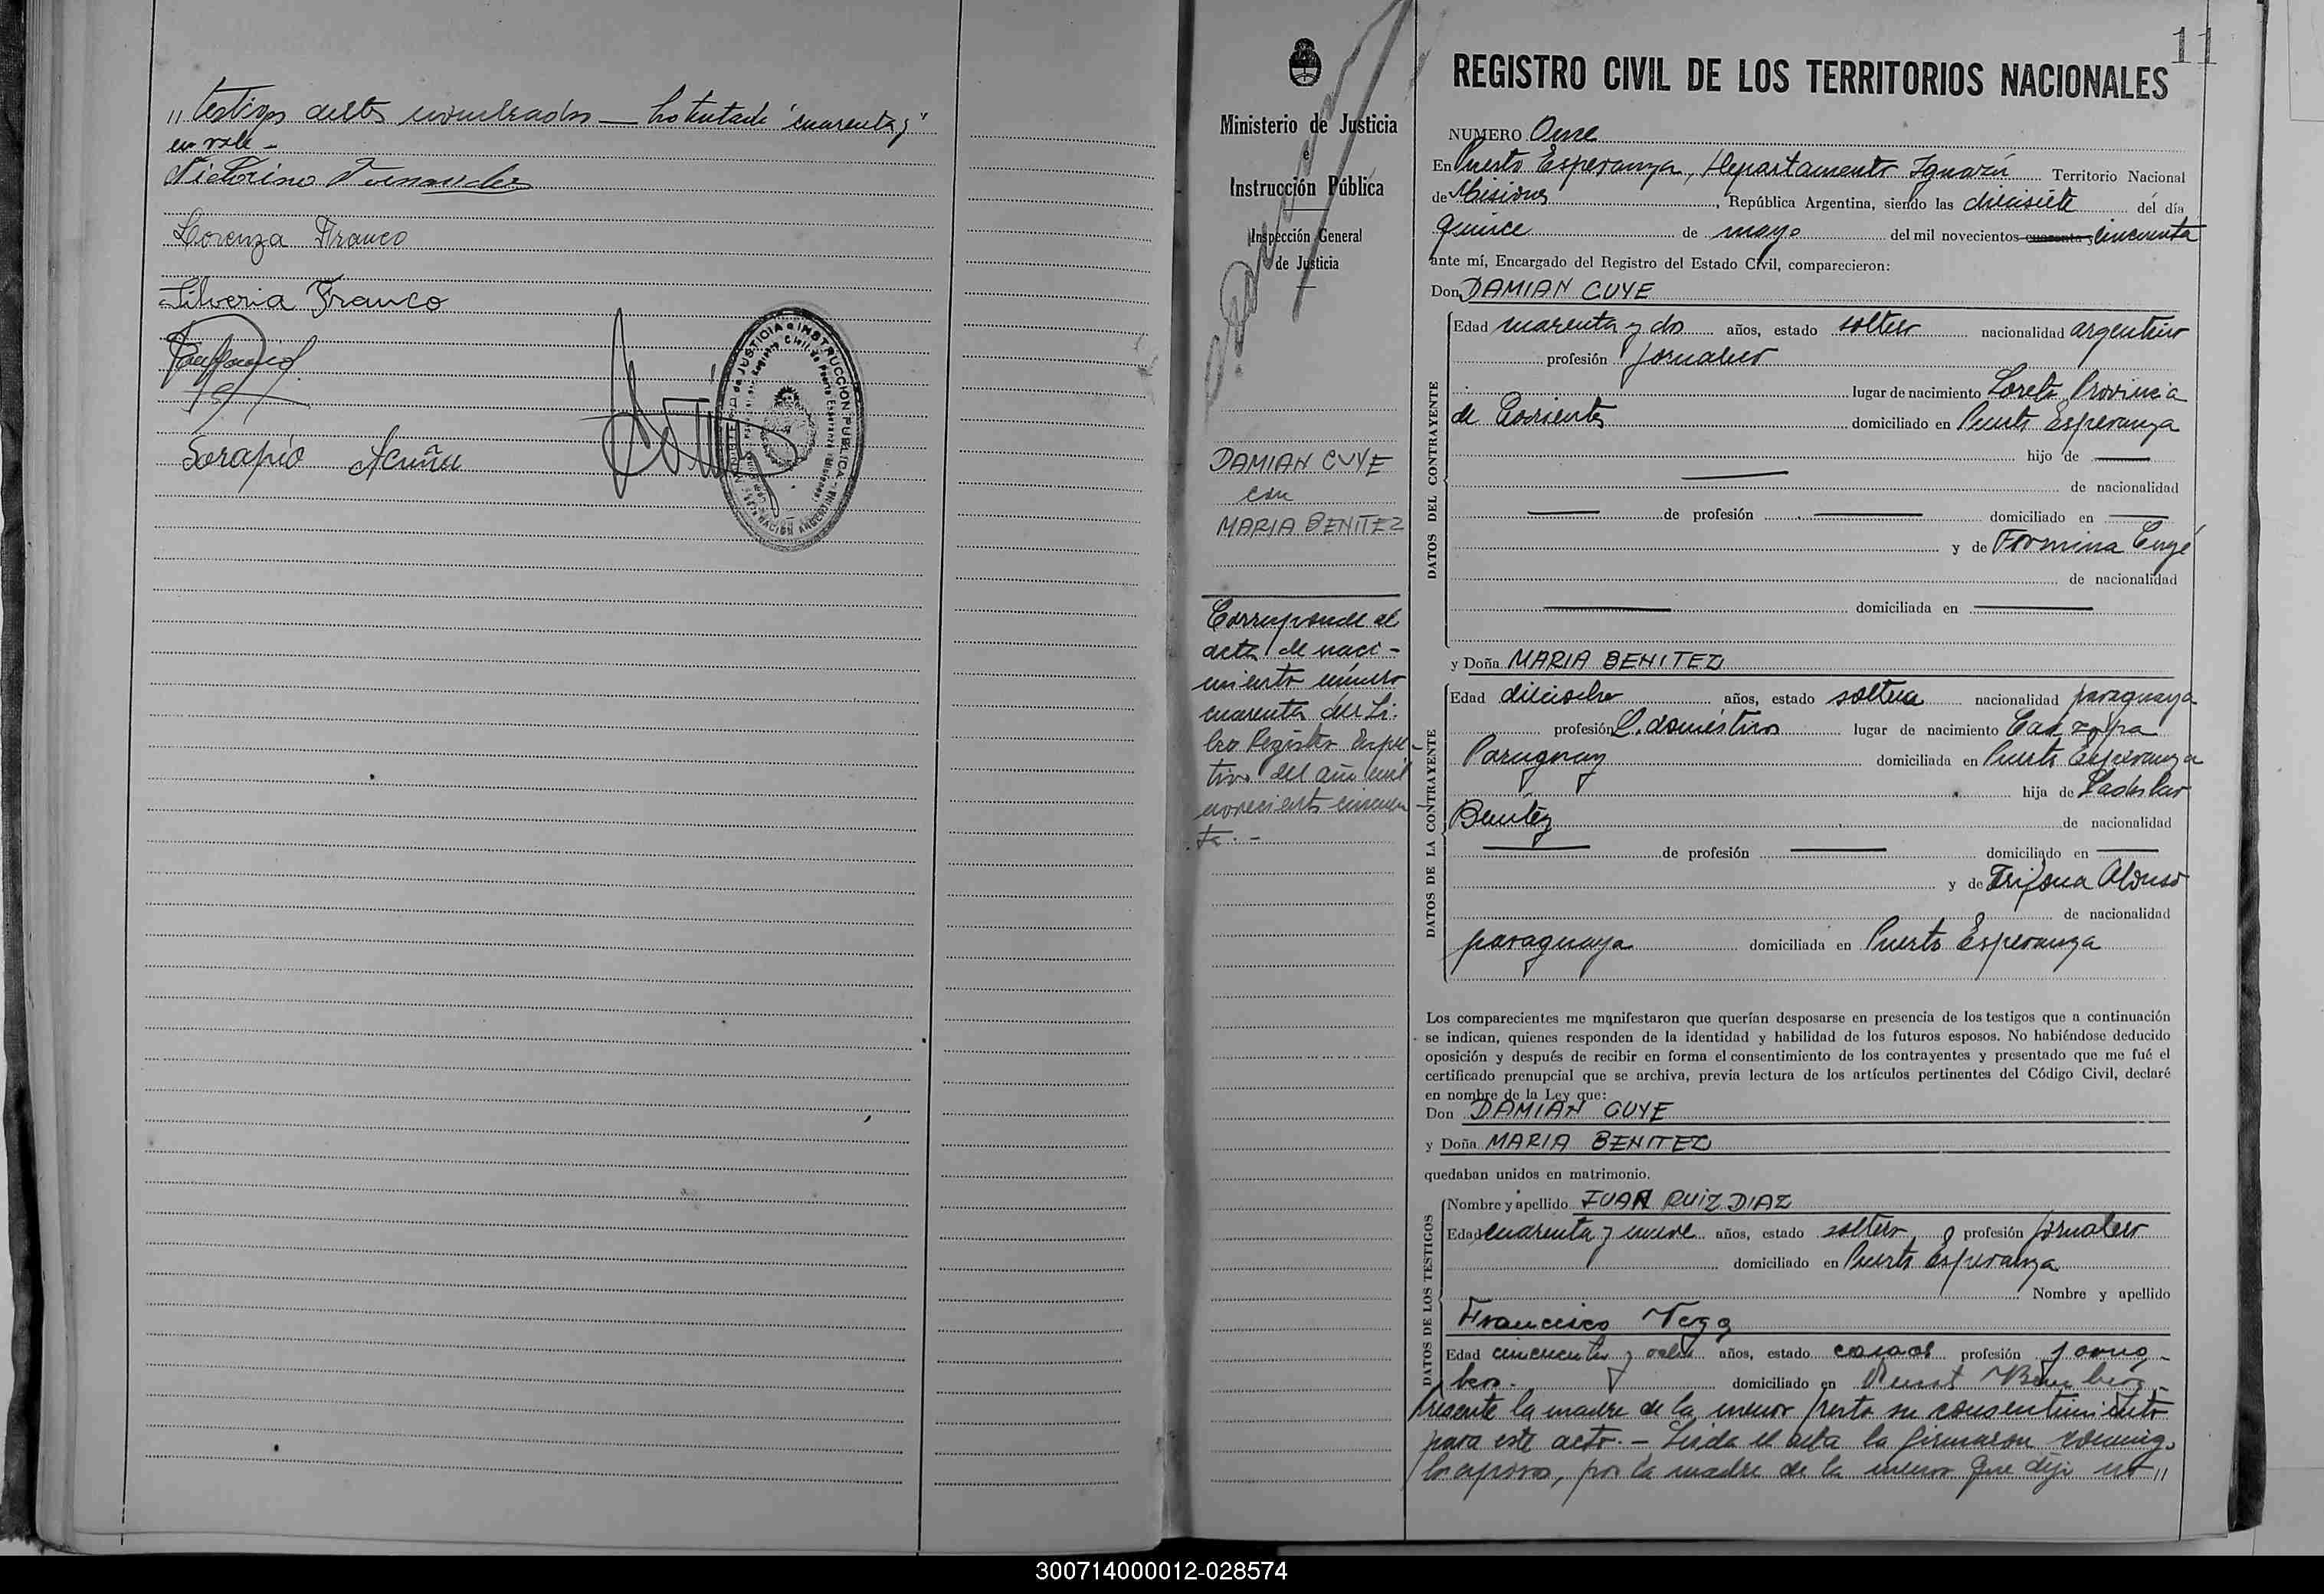 " testigos antes nombrados — Lo testado "cuarenta y"
no vale -
Victorino Fernandez
Lorenza Franco
Silveria Franco
Serapio Acuña
11
Ministerio de Justicia
e
Instrucción Pública
Inspección General
de Justicia
DAMIAN CUYE
con
MARIA BENITEZ
Corresponde al
acta de naci-
miento número
cuarenta del Li-
bro Registro respec-
tivo del año mil
novecientos cincuen-
ta. -
REGISTRO CIVIL DE LOS TERRITORIOS NACIONALES
NUMERO Once
En Puerto Esperanza, Departamento Iguazú Territorio Nacional
de Misiones, República Argentina, siendo las diecisiete del día
quince de mayo del mil novecientos cuarenta y cincuenta
ante mí, Encargado del Registro del Estado Civil, comparecieron:
Don DAMIAN CUYE
DATOS DEL CONTRAYENTE
Edad cuarenta y dos años, estado soltero nacionalidad argentino
profesión jornalero
lugar de nacimiento Loreto Provincia
de Corrientes domiciliado en Puerto Esperanza
hijo de
de nacionalidad
de profesión domiciliado en
y de Formina Cuyé
de nacionalidad
domiciliada en
y Doña MARIA BENITEZ
DATOS DE LA CONTRAYENTE
Edad dieciocho años, estado soltera nacionalidad paraguaya
profesión Q. domésticos lugar de nacimiento Caazapa
Paraguay domiciliada en Puerto Esperanza
hija de Ladislao
Benítez de nacionalidad
de profesión domiciliado en
y de Trifona Alonso
de nacionalidad
paraguaya domiciliada en Puerto Esperanza
Los comparecientes me manifestaron que querían desposarse en presencia de los testigos que a continuación
se indican, quienes responden de la identidad y habilidad de los futuros esposos. No habiéndose deducido
oposición y después de recibir en forma el consentimiento de los contrayentes y presentado que me fué el
certificado prenupcial que se archiva, previa lectura de los artículos pertinentes del Código Civil, declaré
en nombre de la Ley que:
Don DAMIAN CUYE
y Doña MARIA BENITEZ
quedaban unidos en matrimonio.
DATOS DE LOS TESTIGOS
Nombre y apellido JUAN RUIZ DIAZ
Edad cuarenta y nueve años, estado soltero profesión jornalero
domiciliado en Puerto Esperanza
Nombre y apellido
Francisco Vega
Edad cincuenta y ocho años, estado casado profesión
domiciliado en Puerto Bemberg
Presente la madre de la menor presta su consentimiento
para este acto. - Leída el acta la firmaron conmigo
los esposos, por la madre de la menor que dijo no "
300714000012-028574